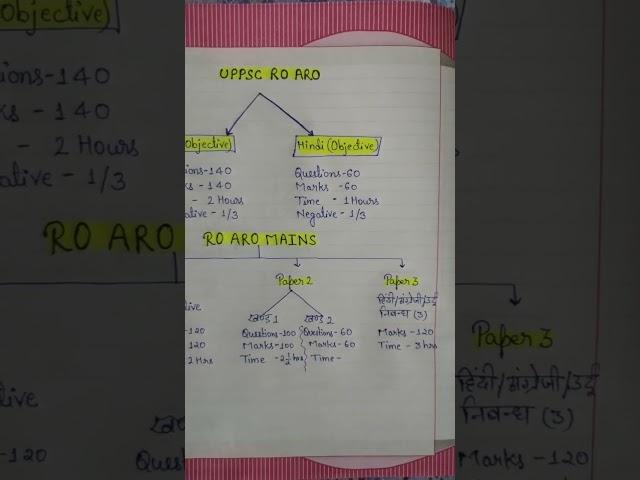 UPPSC RO ARO
Objective)
Hindi (Objective)
ions-140
Questions-60
s - 140
Marks -60
- 2 Hours
Time - 1 Hours
ative - 1/3
Negative - 1/3
RO ARO MAINS
Paper 2
Paper 3
हिंदी/अंग्रेजी/उर्दू
निबन्ध (3)
खण्ड 1
खण्ड 2
ive
-120
Questions-100
Questions-60
Marks-120
120
Marks-100
Marks-60
Time - 3 hrs
2 Hrs
Time -2 1/2 hrs
Time -
Objective)
ions-140
ks - 140
- 2 Hours
ative - 1/3
RO ARO
Paper 3
हिंदी/अंग्रेजी/उर्दू
निबन्ध (3)
ive
खण्ड
-120
Ques
Marks -120